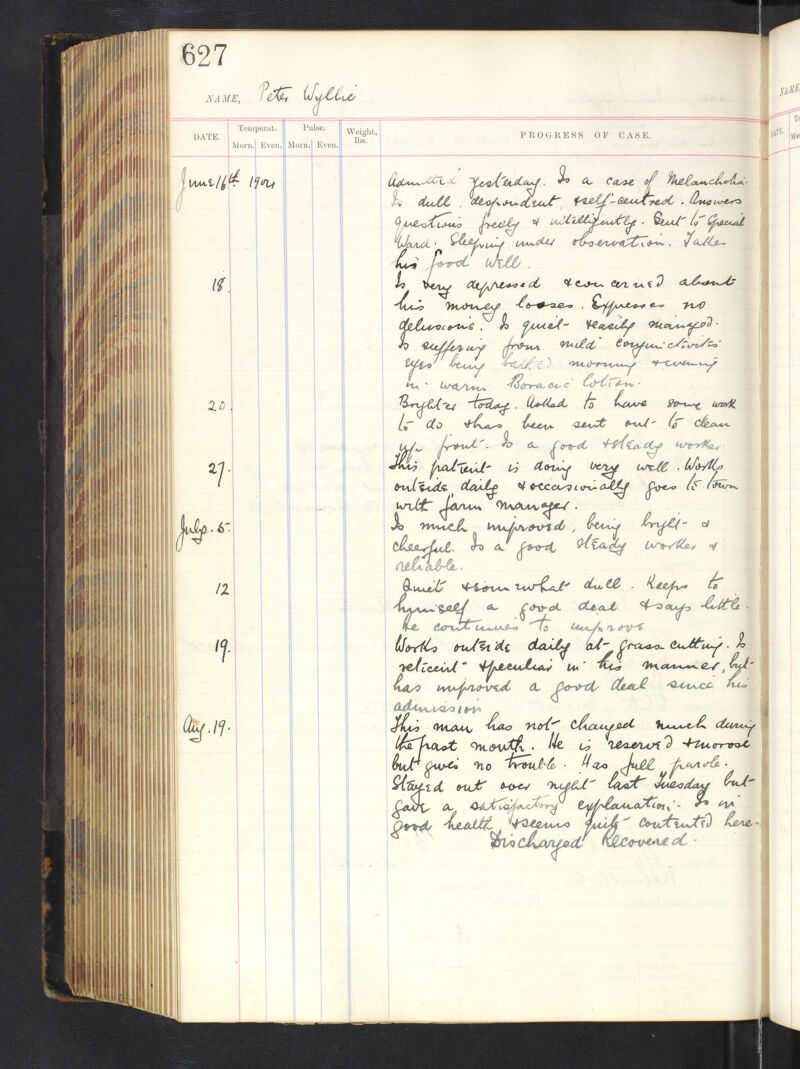 627
NAME, Peter Wyllie
DATE. Temperat. Pulse. Weight, lbs. PROGRESS OF CASE.
Morn. Even. Morn. Even.
June 16th 1904 Admitted yesterday. Is a case of Melancholia.
Is dull, despondent & self-centred. Answers
questions freely & intelligently. Sent to Special
Ward. Sleeping under observation. Takes
his food well.
18. Is very depressed & concerned about
his money losses. Expresses no
delusions. Is quiet & easily managed.
Is suffering from mild conjunctivitis
eyes being bathed morning & evening
in warm Boracic lotion.
20. Brighter today. Asked to have some work
to do & has been sent out to clean
up front. Is a good & steady worker
27. This patient is doing very well. Works
outside daily & occasionally goes to town
with farm manager.
July. 5. Is much improved, being bright &
cheerful. Is a good steady worker &
reliable.
12 Quiet & somewhat dull. Keeps to
himself a good deal & says little.
He continues to improve
19. Works outside daily at grass cutting. Is
reticent & peculiar in his manner, but
has improved a good deal since his
admission
Aug. 19. This man has not changed much during
the past month. He is reserved & morose
but gives no trouble. Has full parole.
Stayed out over night last Tuesday but
gave a satisfactory explanation. Is in
good health & seems quite contented here.
Discharged Recovered.
NAME,
DATE.